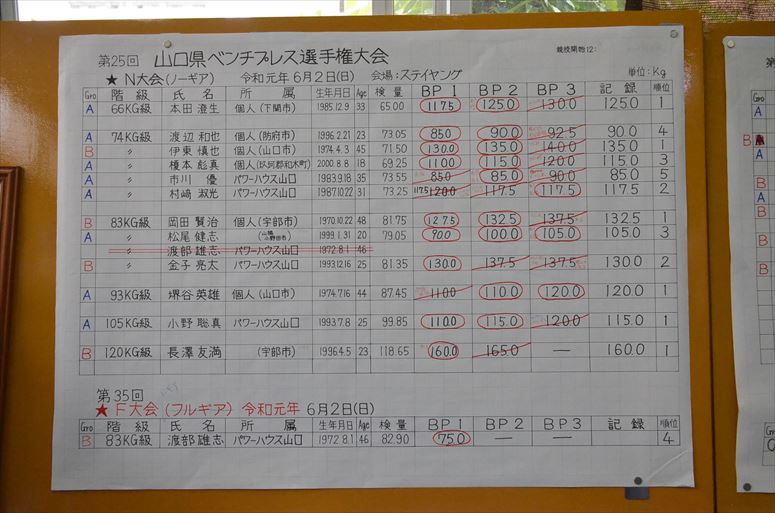 競技開始12:
第25回 山口県ベンチプレス選手権大会
★ N大会(ノーギア) 令和元年 6月2日(日) 会場:ステイヤング 単位:Kg
Gro 階級 氏名 所属 生年月日 Age 検量 BP1 BP2 BP3 記録 順位
A 66KG級 本田 澄生 個人(下関市) 1985.12.9 33 65.00 117.5 125.0 130.0 125.0 1
A 74KG級 渡辺 和也 個人(防府市) 1996.2.21 23 73.05 85.0 90.0 92.5 90.0 4
B 〃 伊東 慎也 個人(山口市) 1974.4.3 45 71.50 130.0 135.0 140.0 135.0 1
A 〃 榎本 彪真 個人(玖珂郡和木町) 2000.8.8 18 69.25 110.0 115.0 120.0 115.0 3
A 〃 市川 優 パワーハウス山口 1983.9.18 35 73.55 85.0 85.0 90.0 85.0 5
A 〃 村崎 淑光 パワーハウス山口 1987.10.22 31 73.25 117.5 120.0 117.5 117.5 117.5 2
B 83KG級 岡田 賢治 個人(宇部市) 1970.10.22 48 81.75 127.5 132.5 137.5 132.5 1
A 〃 松尾 健志 個人(山陽小野田市) 1999.1.31 20 79.05 90.0 100.0 105.0 105.0 3
〃 渡部 雄志 パワーハウス山口 1972.8.1 46
B 〃 金子 亮太 パワーハウス山口 1993.12.16 25 81.35 130.0 137.5 137.5 130.0 2
A 93KG級 堺谷 英雄 個人(山口市) 1974.7.16 44 87.45 110.0 110.0 120.0 120.0 1
A 105KG級 小野 聡真 パワーハウス山口 1993.7.8 25 99.85 110.0 115.0 120.0 115.0 1
B 120KG級 長澤 友満 (宇部市) 1996.4.5 23 118.65 160.0 165.0 — 160.0 1
第35回
★ F大会(フルギア) 令和元年 6月2日(日)
Gro 階級 氏名 所属 生年月日 Age 検量 BP1 BP2 BP3 記録 順位
B 83KG級 渡部 雄志 パワーハウス山口 1972.8.1 46 82.90 75.0 — — 4